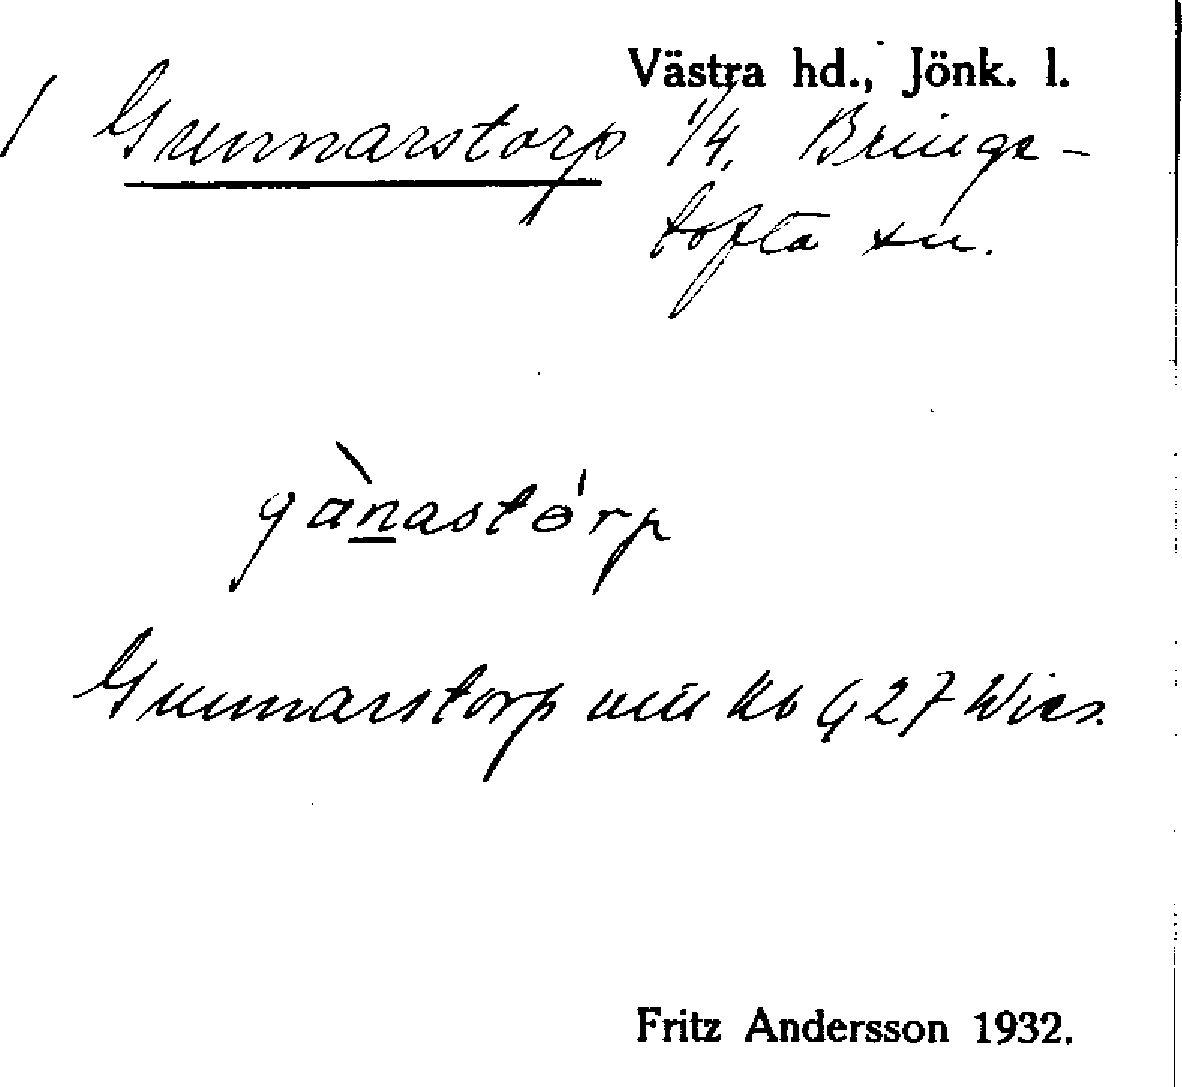 Västra hd., Jönk. l.
/ Gunnarstorp 1/4, Bringe-
tofta sn.
gànastórp
Gunnarstorp Kb G 27 Wies.
Fritz Andersson 1932.